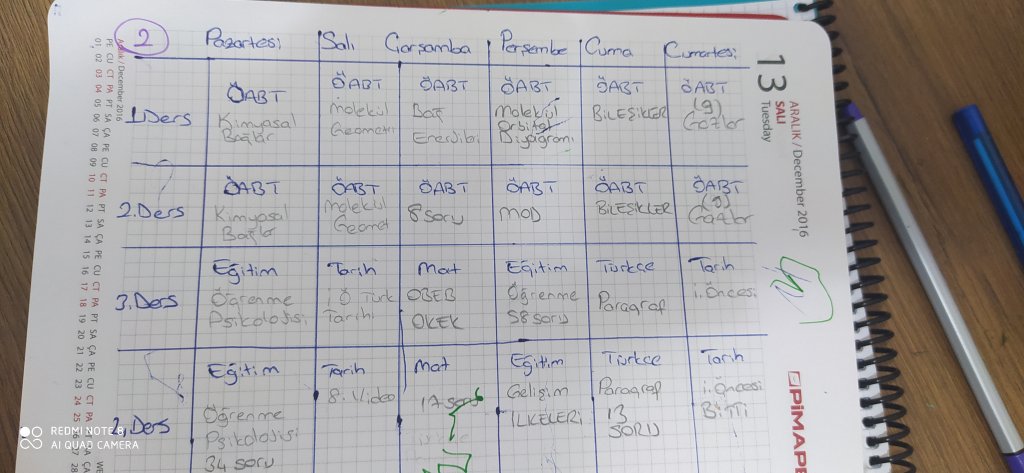 2 Pazartesi Salı Çarşamba Perşembe Cuma Cumartesi
1.Ders
ÖABT ÖABT ÖABT ÖABT ÖABT ÖABT
Kimyasal molekül Bağ Molekül BİLEŞİKLER (9)
Bağlar Geometri Enerjileri Orbital Gazlar
Diyagramı
2.Ders
ÖABT ÖABT ÖABT ÖABT ÖABT ÖABT
Kimyasal molekül 8 soru MOD BİLEŞİKLER (9)
Bağlar Geomet Gazlar
3.Ders
Eğitim Tarih Mat Eğitim Türkçe Tarih
Öğrenme i.Ö Türk OBEB Öğrenme Paragraf i.Öncesi
Psikolojisi Tarihi OKEK 58 soru
Ders
Eğitim Tarih Mat Eğitim Türkçe Tarih
Öğrenme 8. Video 17 soru Gelişim Paragraf i.Öncesi
Psikolojisi İLKELERİ 13 Bitti
34 soru SORU
13
SALI
Tuesday
ARALIK / December 2016
Aralık / December 2016
PE CU CT PA PT SA ÇA PE CU CT PA PT SA ÇA PE CU CT PA PT SA ÇA PE CU CT PA PT SA ÇA
01 02 03 04 05 06 07 08 09 10 11 12 13 14 15 16 17 18 19 20 21 22 23 24 25 26 27 28
PİMAPE
REDMI NOTE 8
AI QUAD CAMERA